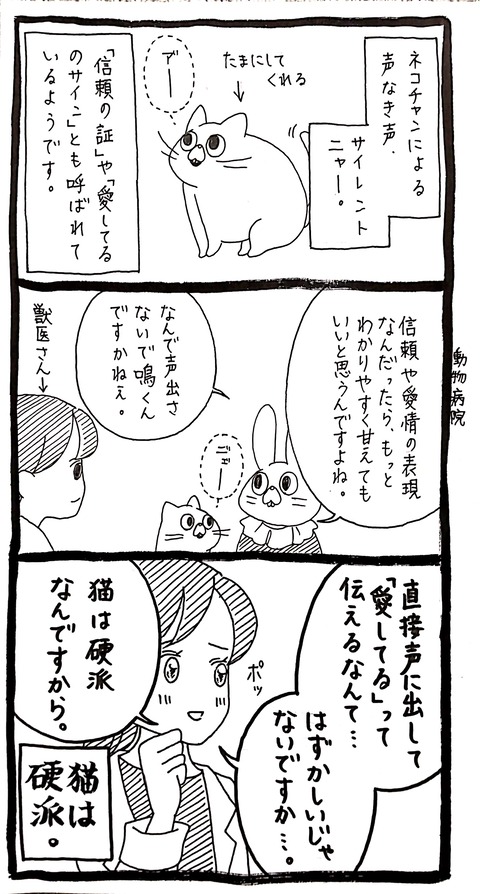 ネコチャンによる
声なき声、
サイレント
ニャー。
たまにして
くれる
アー
「信頼の証」や「愛してる
のサイン」とも呼ばれて
いるようです。
動物病院
信頼や愛情の表現
なんだったら、もっと
わかりやすく甘えても
いいと思うんですよね。
ニャー
なんで声出さ
ないで鳴くん
ですかねぇ。
獣医さん
直接声に出して
「愛してる」って
伝えるなんて…
はずかしいじゃ
ないですか…。
ポッ
猫は硬派
なんですから。
猫は
硬派。